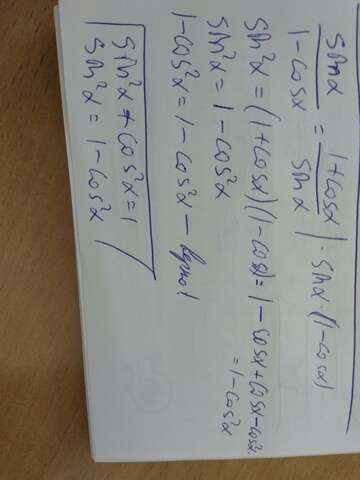 sin α / 1 - cos α = 1 + cos α / sin α | · sin α · (1 - cos α)
sin²α = (1 + cos α)(1 - cos α) = 1 - cos α + cos α - cos²α
= 1 - cos²α
sin²α = 1 - cos²α
1 - cos²α = 1 - cos²α - верно!
sin²α + cos²α = 1
sin²α = 1 - cos²α